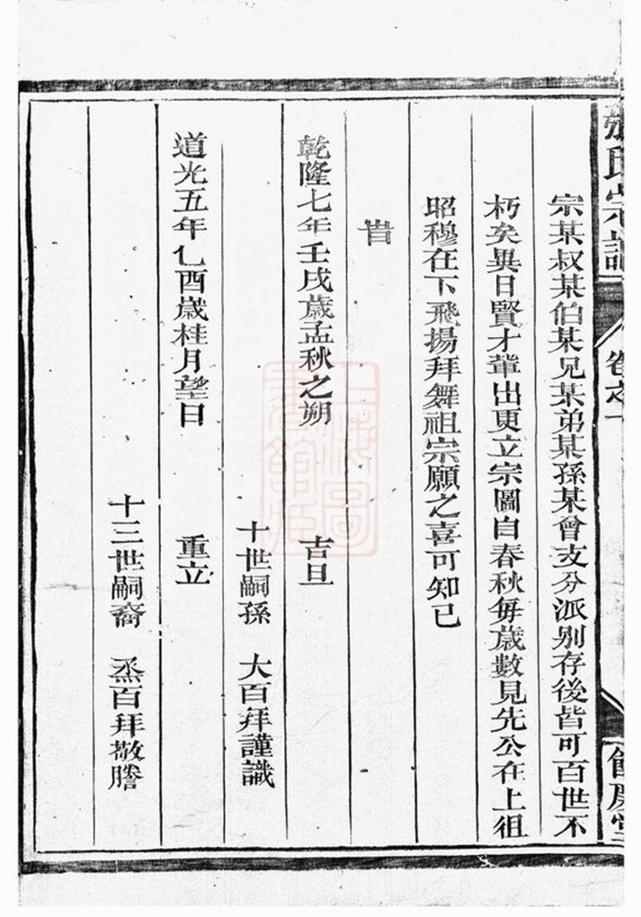 張氏宗譜 卷之一 餘慶堂
宗某叔某伯某兄某弟某孫某曾支分派別存後皆可百世不
朽矣異日賢才輩出更立宗圖自春秋每歲數見先公在上徂
昭穆在下飛揚拜舞祖宗願之喜可知已
旹
乾隆七年壬戌歲孟秋之朔 吉旦
十世嗣孫 大百拜謹識
道光五年乙酉歲桂月望日 重立
十三世嗣裔 烝百拜敬謄
上海圖書館藏